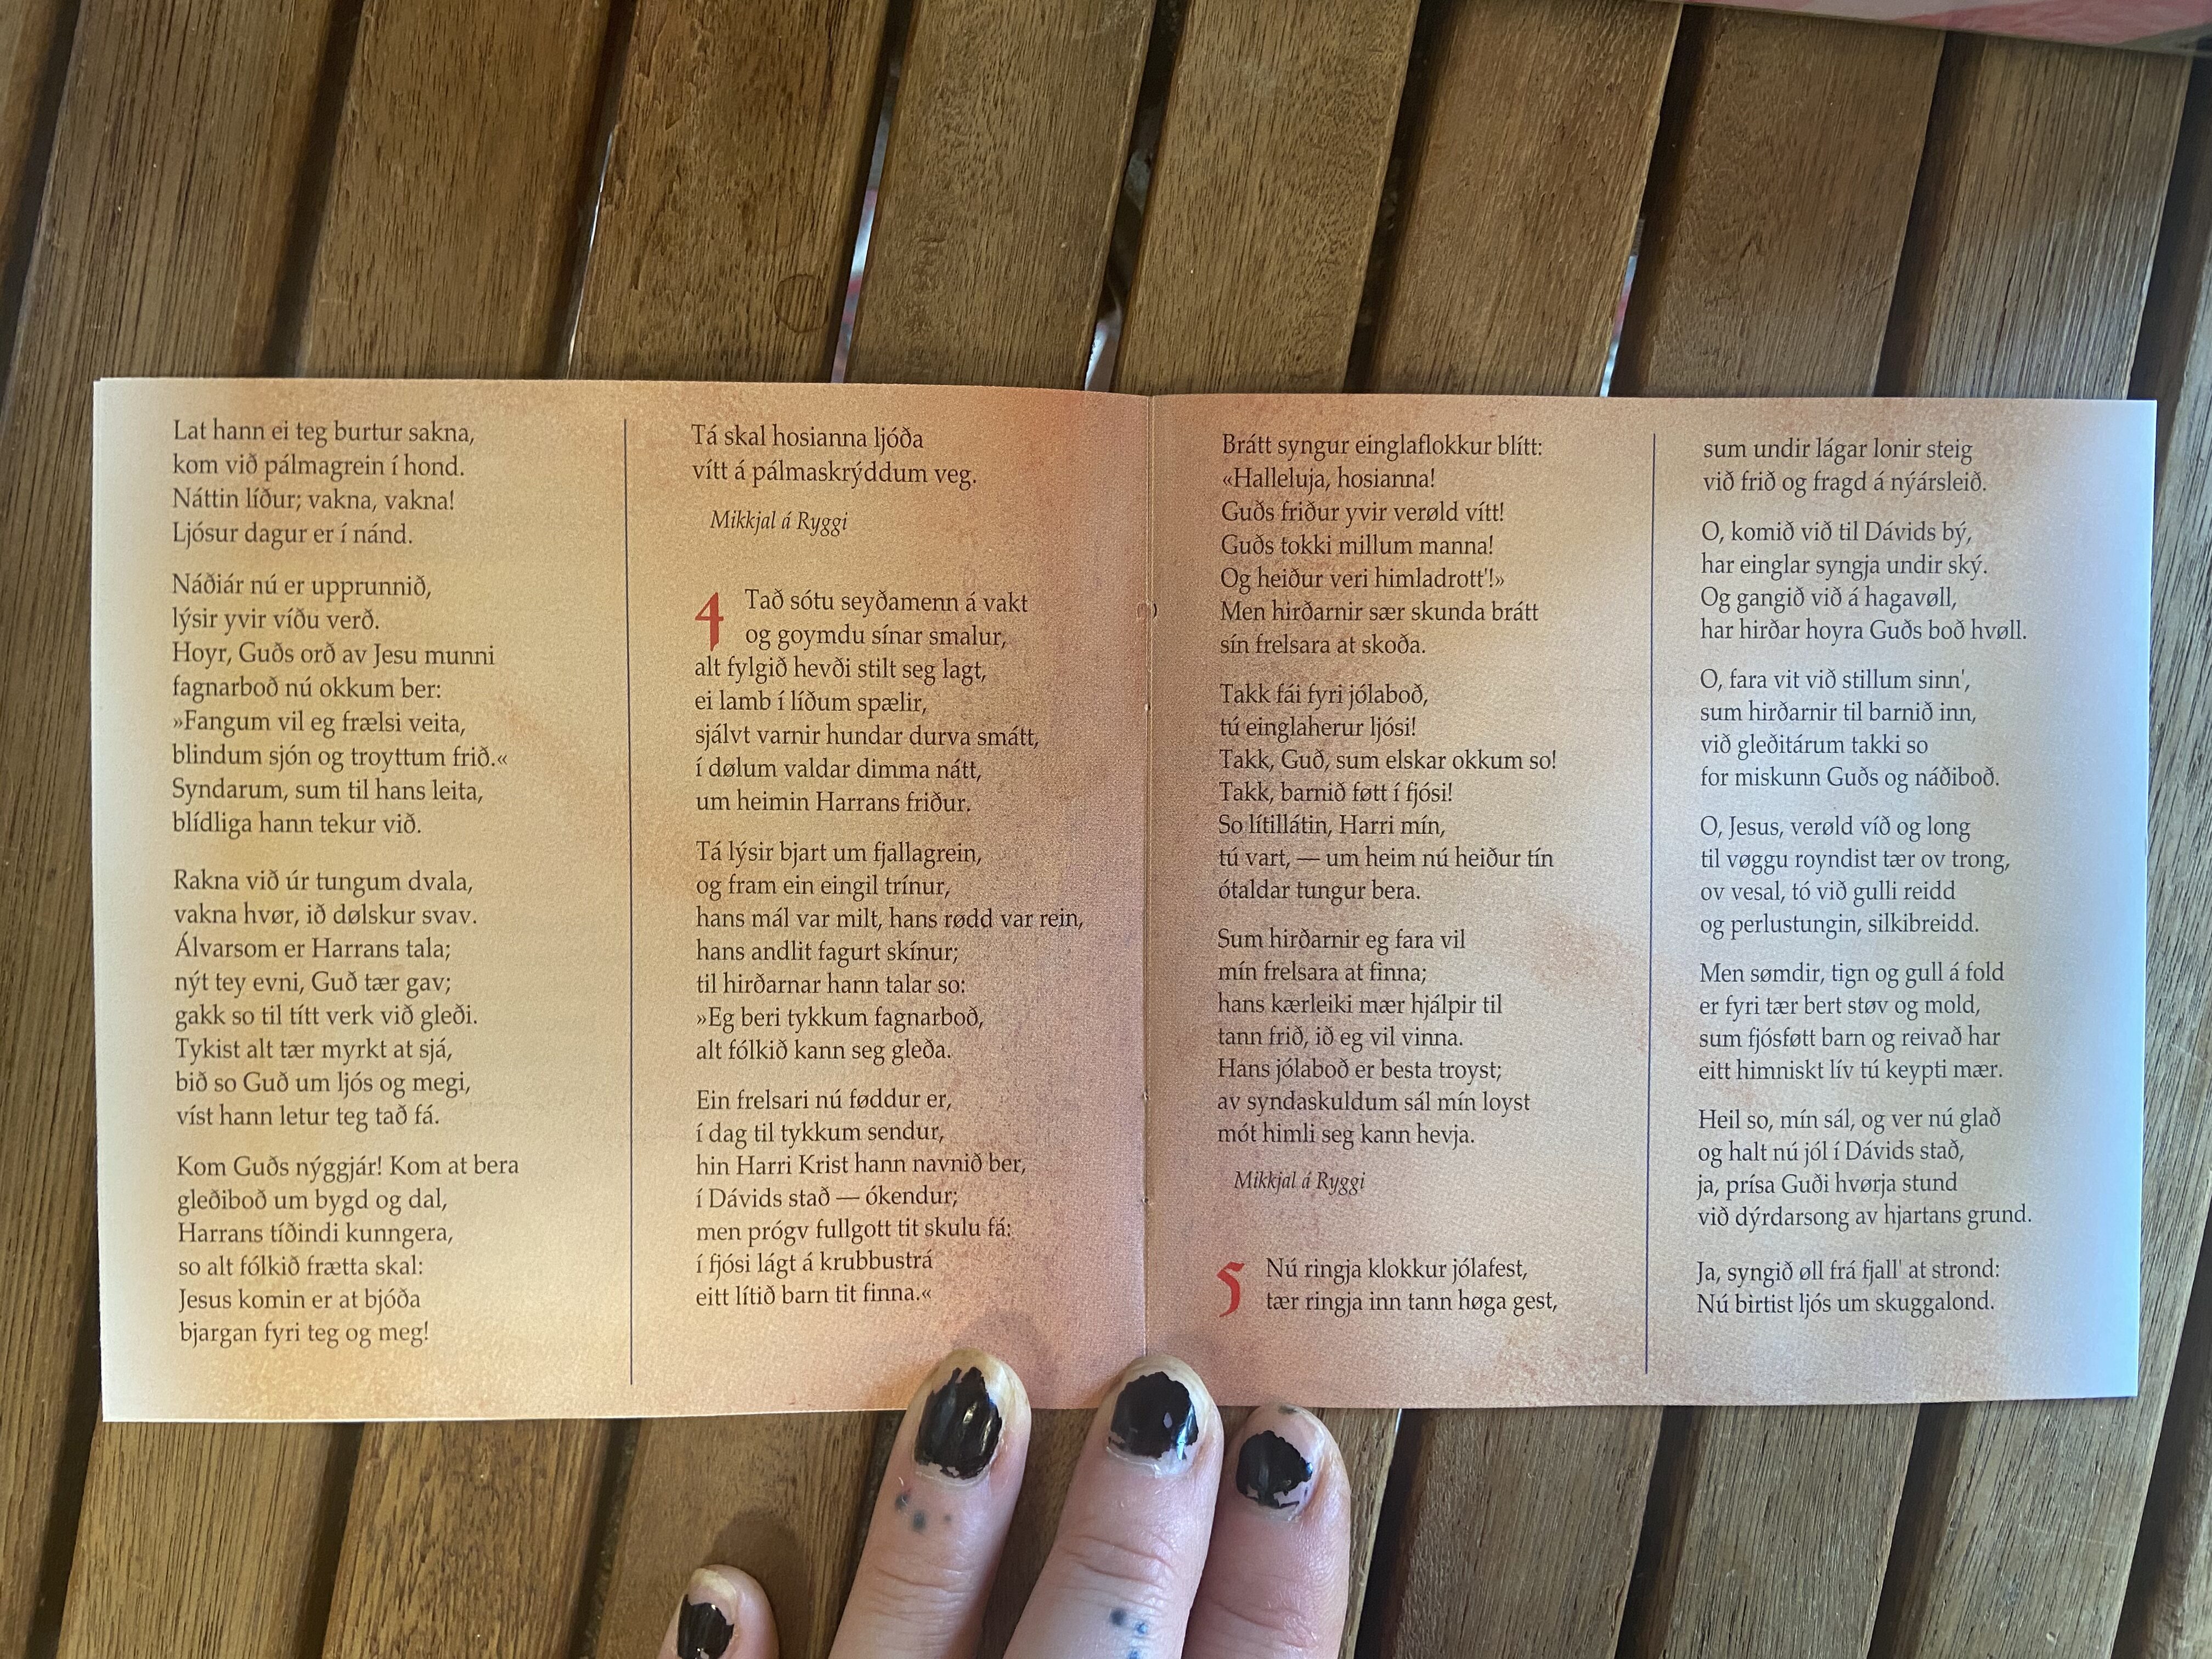 Lat hann ei teg burtur sakna,
kom við pálmagrein í hond.
Náttin líður; vakna, vakna!
Ljósur dagur er í nánd.
Náðiár nú er upprunnið,
lýsir yvir víðu verð.
Hoyr, Guðs orð av Jesu munni
fagnarboð nú okkum ber:
»Fangum vil eg frælsi veita,
blindum sjón og troyttum frið.«
Syndarum, sum til hans leita,
blídliga hann tekur við.
Rakna við úr tungum dvala,
vakna hvør, ið dølskur svav.
Álvarsom er Harrans tala;
nýt tey evni, Guð tær gav;
gakk so til títt verk við gleði.
Tykist alt tær myrkt at sjá,
bið so Guð um ljós og megi,
víst hann letur teg tað fá.
Kom Guðs nýggjár! Kom at bera
gleðiboð um bygd og dal,
Harrans tíðindi kunngera,
so alt fólkið frætta skal:
Jesus komin er at bjóða
bjargan fyri teg og meg!
Tá skal hosianna ljóða
vítt á pálmaskrýddum veg.
Mikkjal á Ryggi
4 Tað sótu seyðamenn á vakt
og goymdu sínar smalur,
alt fylgið hevði stilt seg lagt,
ei lamb í líðum spælir,
sjálvt varnir hundar durva smátt,
í dølum valdar dimma nátt,
um heimin Harrans friður.
Tá lýsir bjart um fjallagrein,
og fram ein eingil trínur,
hans mál var milt, hans rødd var rein,
hans andlit fagurt skínur;
til hirðarnar hann talar so:
»Eg beri tykkum fagnarboð,
alt fólkið kann seg gleða.
Ein frelsari nú føddur er,
í dag til tykkum sendur,
hin Harri Krist hann navnið ber,
í Dávids stað — ókendur;
men prógv fullgott tit skulu fá:
í fjósi lágt á krubbustrá
eitt lítið barn tit finna.«
Brátt syngur einglaflokkur blítt:
«Halleluja, hosianna!
Guðs friður yvir verøld vítt!
Guðs tokki millum manna!
Og heiður veri himladrott'!»
Men hirðarnir sær skunda brátt
sín frelsara at skoða.
Takk fái fyri jólaboð,
tú einglaherur ljósi!
Takk, Guð, sum elskar okkum so!
Takk, barnið føtt í fjósi!
So lítillátin, Harri mín,
tú vart, — um heim nú heiður tín
ótaldar tungur bera.
Sum hirðarnir eg fara vil
mín frelsara at finna;
hans kærleiki mær hjálpir til
tann frið, ið eg vil vinna.
Hans jólaboð er besta troyst;
av syndaskuldum sál mín loyst
mót himli seg kann hevja.
Mikkjal á Ryggi
5 Nú ringja klokkur jólafest,
tær ringja inn tann høga gest,
sum undir lágar lonir steig
við frið og fragd á nýársleið.
O, komið við til Dávids bý,
har einglar syngja undir ský.
Og gangið við á hagavøll,
har hirðar hoyra Guðs boð hvøll.
O, fara vit við stillum sinn',
sum hirðarnir til barnið inn,
við gleðitárum takki so
for miskunn Guðs og náðiboð.
O, Jesus, verøld víð og long
til vøggu royndist tær ov trong,
ov vesal, tó við gulli reidd
og perlustungin, silkibreidd.
Men sømdir, tign og gull á fold
er fyri tær bert støv og mold,
sum fjósføtt barn og reivað har
eitt himniskt lív tú keypti mær.
Heil so, mín sál, og ver nú glað
og halt nú jól í Dávids stað,
ja, prísa Guði hvørja stund
við dýrdarsong av hjartans grund.
Ja, syngið øll frá fjall' at strond:
Nú birtist ljós um skuggalond.